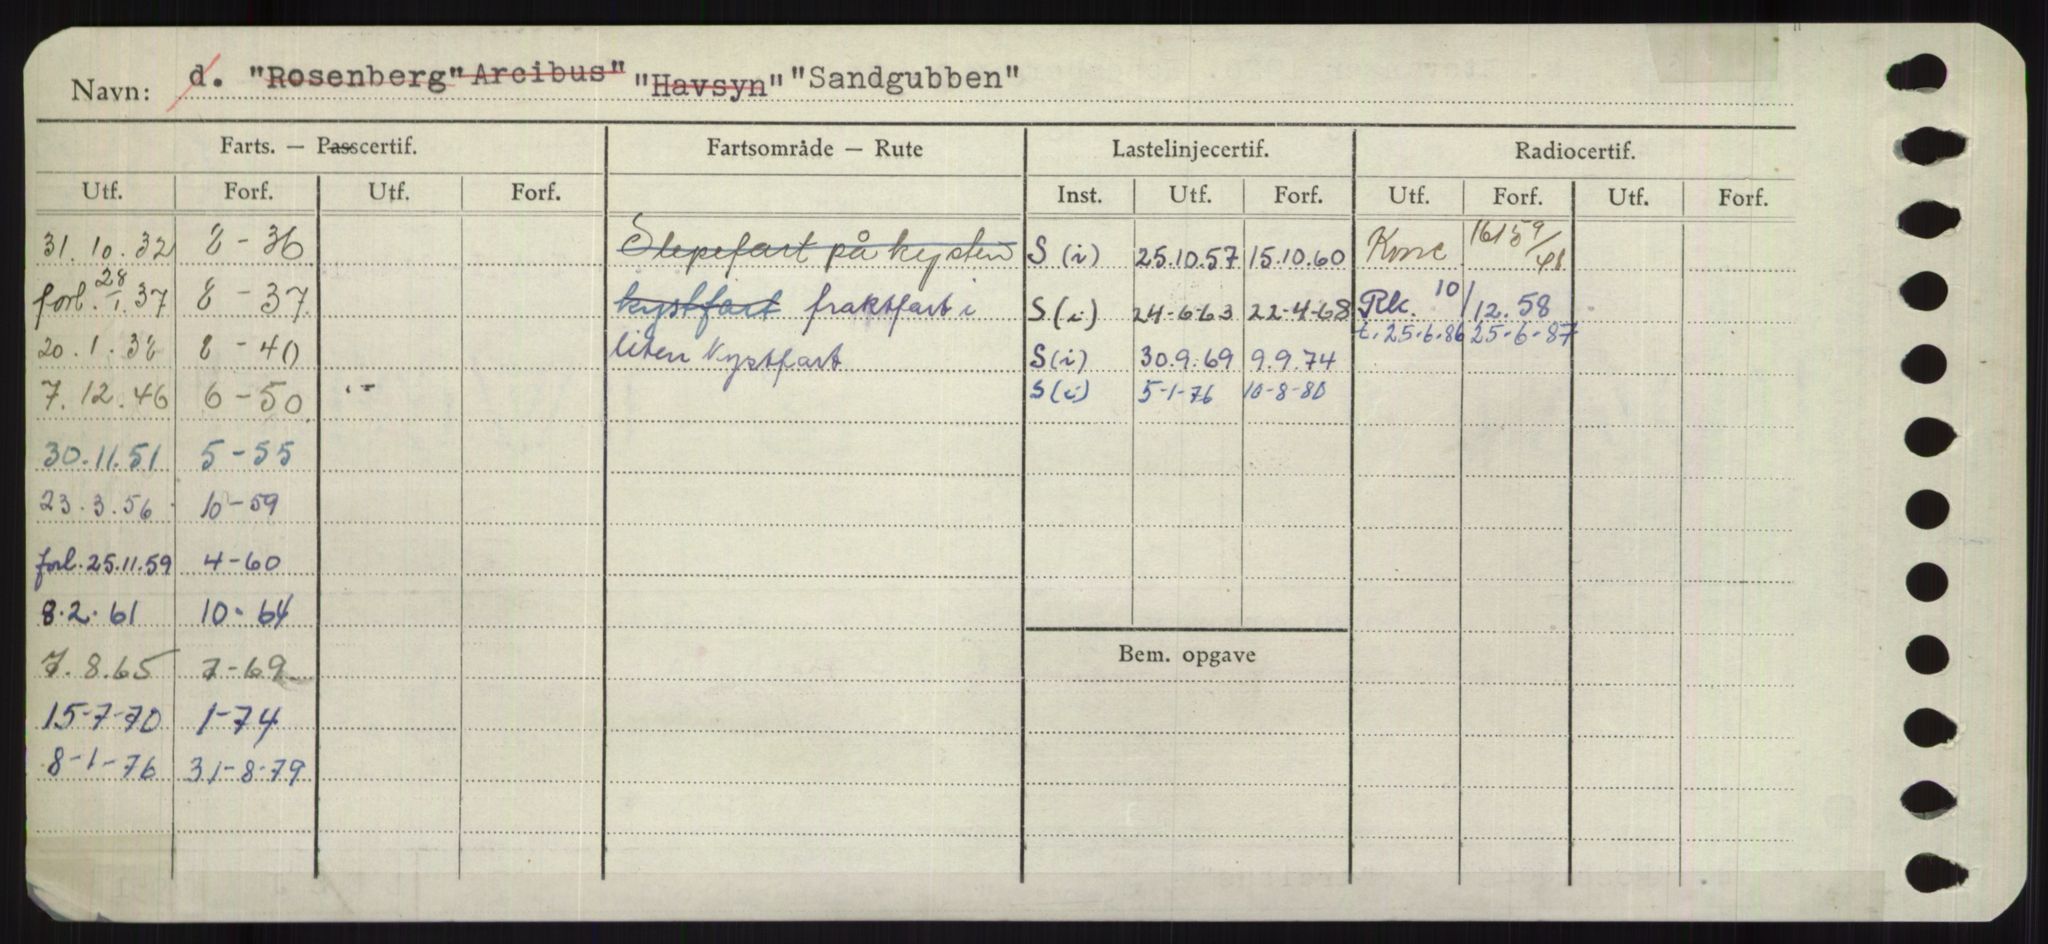 Navn: d. "Rosenberg" Arcibus" "Havsyn" "Sandgubben"
Farts. — Passcertif. Fartsområde — Rute Lastelinjecertif. Radiocertif.
Utf. Forf. Utf. Forf. Inst. Utf. Forf. Utf. Forf. Utf. Forf.
31.10.32 8-36 Slepefart på kysten S (i) 25.10.57 15.10.60
forl. 28/1.37 8-37 kystfart fraktfart i S (i) 24-6-63 22-4-68 Rk. 10/12.58
t. 25-6-86 25-6-87
20.1.38 8-40 liten kystfart S (i) 30.9.69 9.9.74
7.12.46 6-50 S (i) 5-1-76 10-8-80
30.11.51 5-55
23.3.56 10-59
forl. 25.11.59 4-60
8.2.61 10.64
7.8.65 7-69
15-7-70 1-74
8-1-76 31-8-79
Bem. opgave